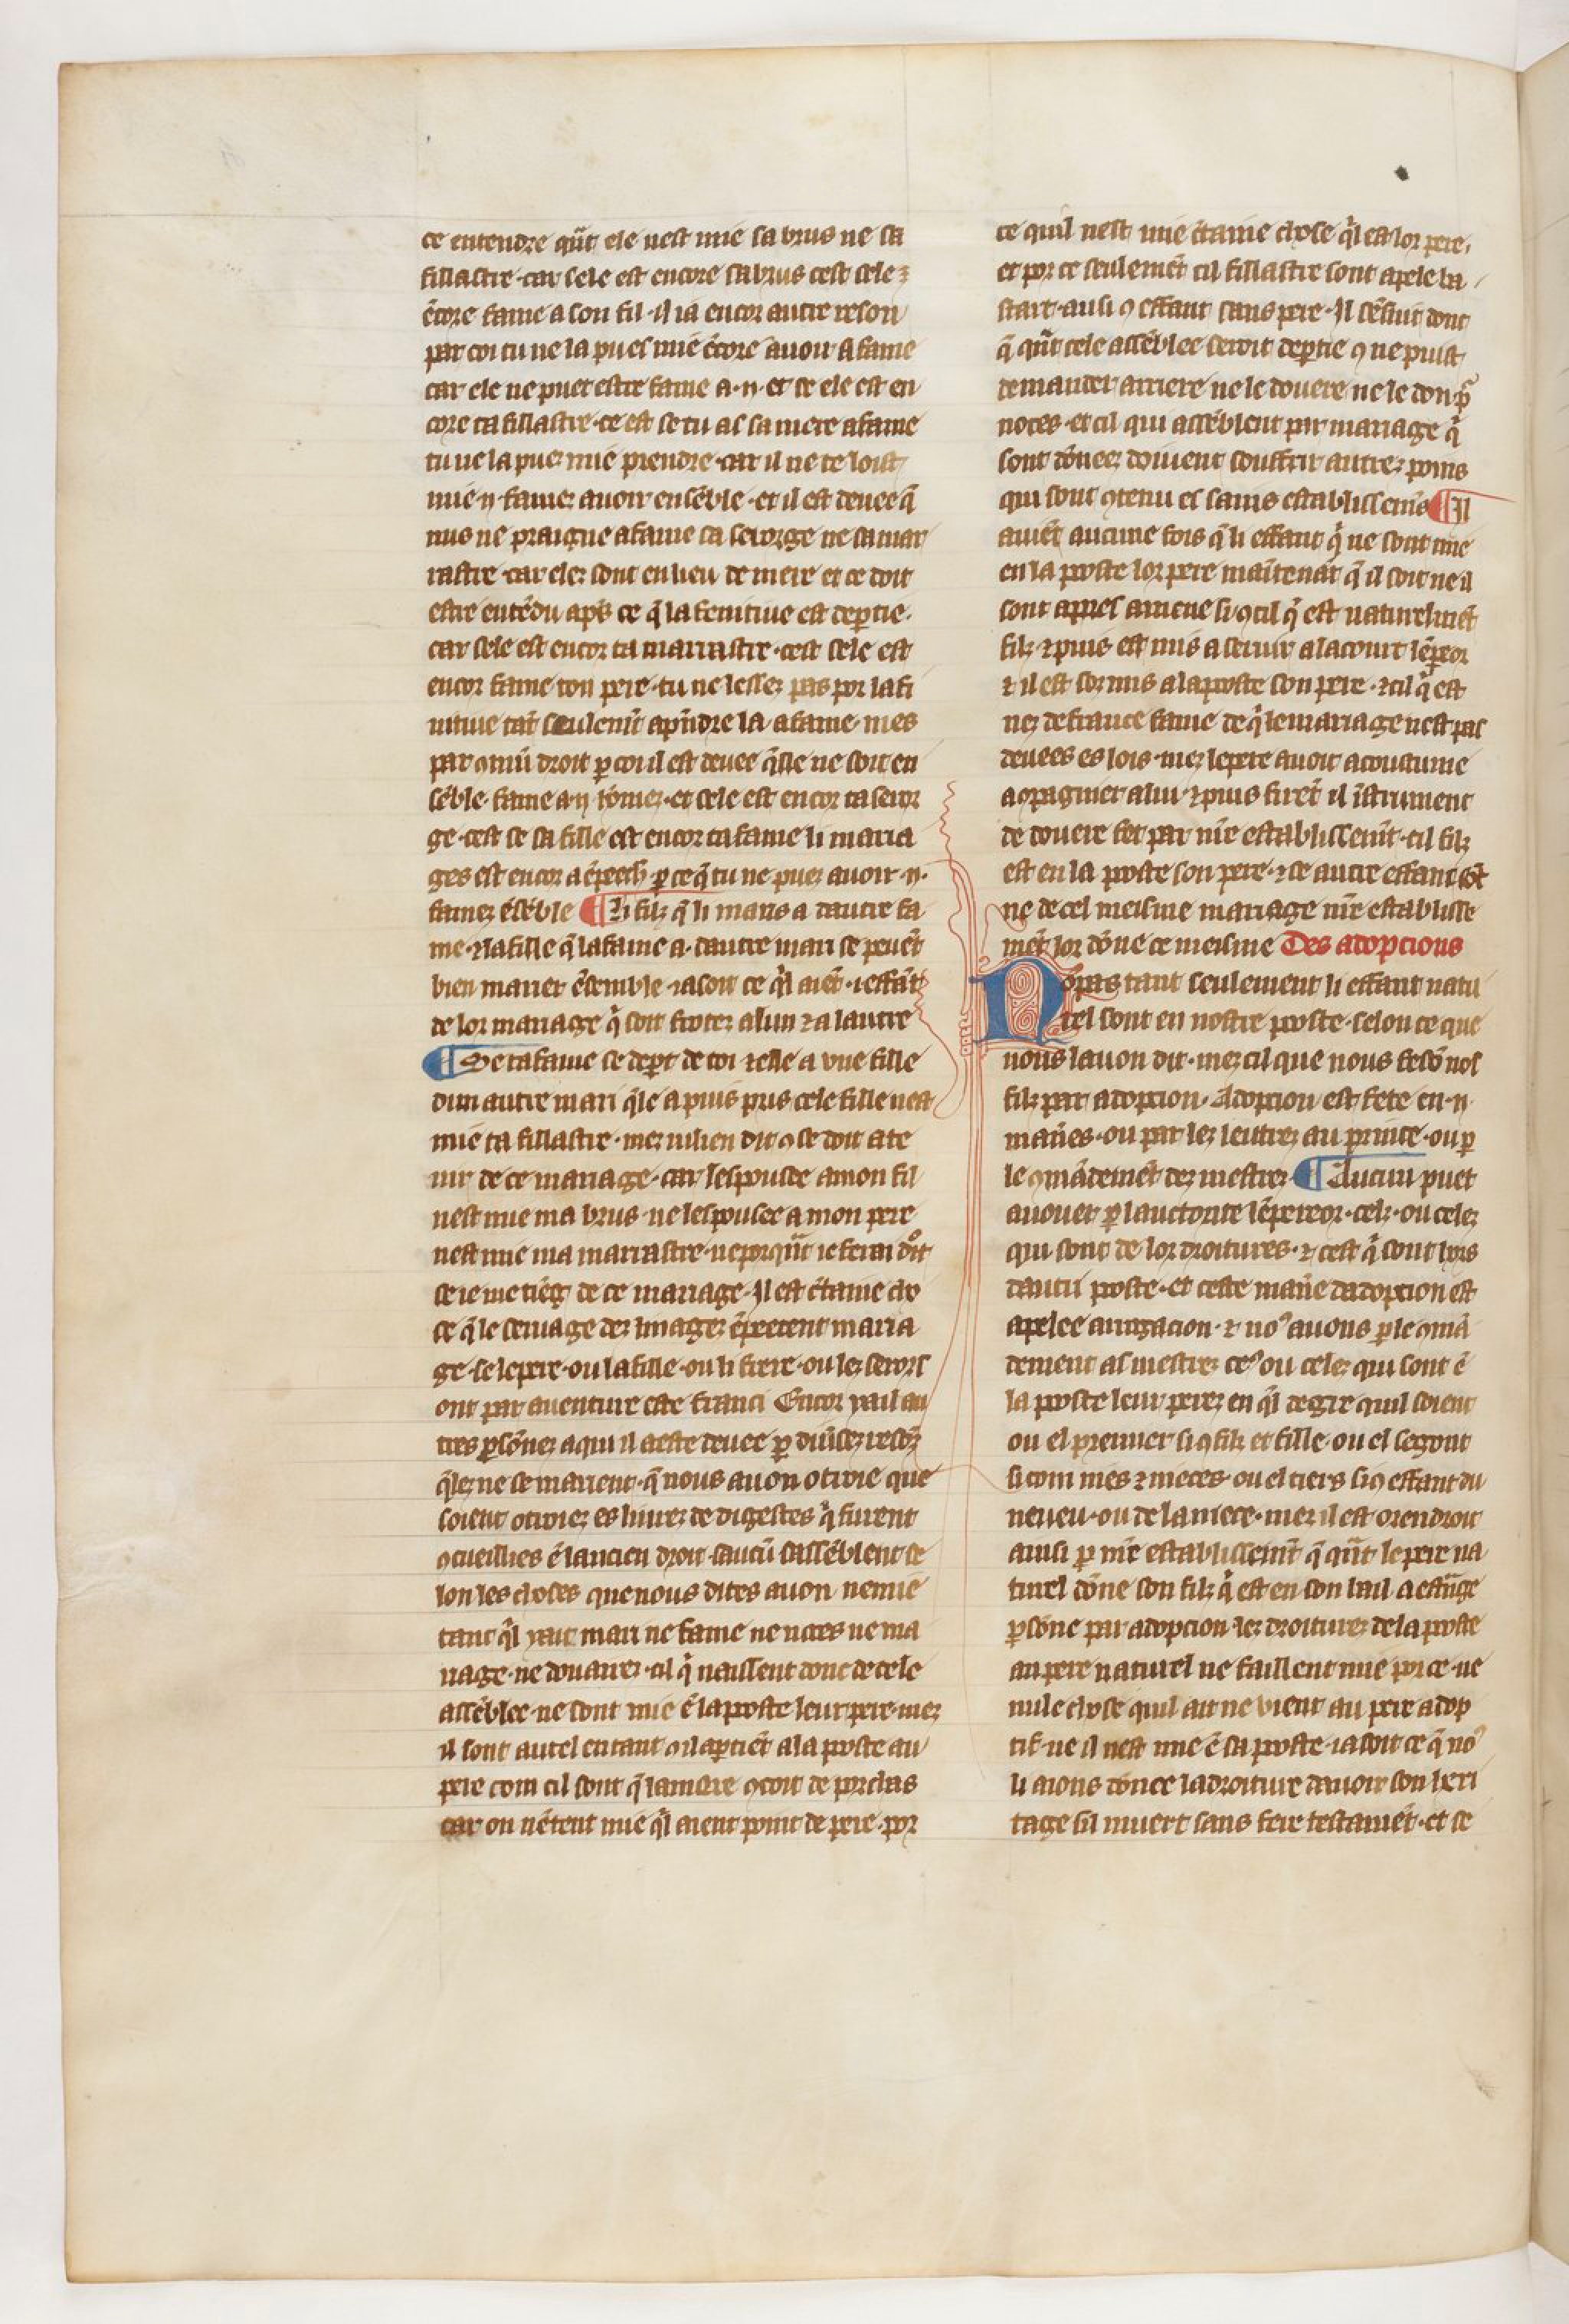 ce entendre qu̅t ele nest mie sa brus ne sa
fillastre · car sele est encore sa brus cest cele ⁊
e̅core fame a son fil · il ia encor autre reson
par coi tu ne la pues mie e̅core auoir a fame
car ele ne puet estre fame a · ij · et se ele est en
core ta fillastre · ce est se tu as sa mere a fame
tu ne la puez mie prendre · car il ne te loist
mie · ij · famez auoir ense̅ble · et il est deuee q̅
nus ne praigne a fame sa serorge ne sa mar
rastre · car elez sont en lieu de mere et ce doit
estre ente̅du ap̅s ce q̅ la fenitiue est dep̱tie ·
car sele est encor ta marrastre · cest sele est
encor fame ton pere · tu ne lessez pas por lafi
nitiue ta̅t seulem̅t a p̅ndre la a fame · mes
par ꝯmu̅ droit ꝑ coi il est deuee q̅lle ne soit en
se̅ble · fame a · ij · homez · et sele est encor ta seror
ge · cest se sa fille est encor ta fame li maria
ges est encor a e̅peech̅ · ꝑ ce q̅ tu ne puez auoir · ij ·
famez e̅se̅ble ¶ Li filz q̅ li maris a dautre fa
me · ⁊ la fille q̅ la fame a · dautre mari se peue̅t
bien marier e̅semble · ia soit ce q̅l aie̅t · i · effa̅t
de lor mariage q̅ soit frorez a lun ⁊ a lautre
¶ Se ta fame se dep̱t de toi ⁊ elle a vne fille
dun autre mari q̅le a puis pris cele fille nest
mie ta fillastre · mez iulien dit ꝯ se doit ate
nir de ce mariage · car lespousee a mon fil
nest mie ma brus · ne lespousee a mon pere
nest mie ma marrastre · neporqu̅t ie ferai doit
se ie me tie̅g de ce mariage · Il est c̅taine cho
se q̅ le seruage dez linagez e̅peecent maria
ge · se le pere · ou la fille · ou li frere · ou lez serors
ont par auenture este franci Encor y a il au
tres ꝑso̅nez a qui il aeste deuee ꝑ diu̅sez reso̅z
q̅lez ne se marient · q̅ nous auon otroie que
soient otroiez es liurez de digestes q̅ furent
ꝯcueillies e̅ lancien droit · saucu̅ sasse̅blent se
lon les choses que nous dites auon nemie
tant q̅l y ait mari ne fame ne noces ne ma
riage · ne douairez · cil q̅ naissent donc de cele
asse̅blee · ne sont mie e̅ la poste leur pere · mez
il sont autel en tant ꝯ il ap̱tie̅t a la poste au
pere com cil sont q̅ la mere ꝯcoit de porchas
car on ne̅tent mie q̅l aient point de pere · por
ce quil nest mie c̅taine chose q̅l est lor pere,
et por ce seuleme̅t cil fillastre sont apele ba
start · ausi ꝯ effant sans pere · Il se̅suit dont
q̅ qu̅t cele asse̅blee seroit dep̱tie ꝯ ne puist
demander arriere ne le douere ne le don p̱
noces · et cil qui asse̅blent par mariage q̅
sont do̅neez doiuent souffrir autrez poins
qui sont ꝯtenu es sains establissem̅s ¶ Il
auie̅t aucune fois q̅ li effant q̅ ne sont mie
en la poste lor pere mai̅tena̅t q̅ il soit ne il
sont apres amene si ꝯ cil q̅ est naturelme̅t
filz ⁊ puis est mis a seruir a la court le̅pereor
⁊ il est sor mis a la poste son pere · ⁊ cil q̅ est
nez de france fame de q̅ le mariage nest pas
deuees es lois · mez le pere auoit acoustume
a ꝯpagnier a lui · ⁊ puis fire̅t il i̅strument
de douere fet par n̅re establissem̅t · cil filz
est en la poste son pere · ⁊ se autre effant so̅t
ne de cel meisme mariage n̅re establisse
me̅t lor do̅ne ce meisme Des adopcions
Nopas tant seulement li effant natu
rel sont en nostre poste · selon ce que
nous lauon dit · mez cil que nous feso̅ nos
filz par adopcion · Adopcion est fete en · ij ·
man̅es · ou par lez leittrez au prince · ou ꝑ
le ꝯma̅deme̅t dez mestrez · ¶ Aucun puet
auouer ꝑ lauctorite le̅pereor · celz · ou celez
qui sont de lor droitures · ⁊ cest q̅ sont hors
dautri poste · et ceste man̅e dadopcion est
apelee arrogacion · ⁊ no⁹ auons ꝑ le ꝯma̅
dement as mestrez ce⁹ ou celez qui sont e̅
la poste leur perez en q̅l degre quil soient
ou el premier si ꝯ filz et fille · ou el segont
si com niés ⁊ nieces · ou el tiers si ꝯ effant du
neueu · ou de la niece · mez il est orendroit
ainsi ꝑ n̅re establissem̅t q̅ qu̅t le pere na
turel do̅ne son filz q̅ est en son bail a estra̅ge
ꝑso̅ne par adopcion · lez droiturez de la poste
au pere naturel ne faillent mie por ce · ne
nule chose quil ait ne vient au pere adop
tif · ne il nest mie e̅ sa poste · ia soit ce q̅ no⁹
li aions do̅nee la droiture dauoir son heri
tage sil muert sans fere testame̅t · et se